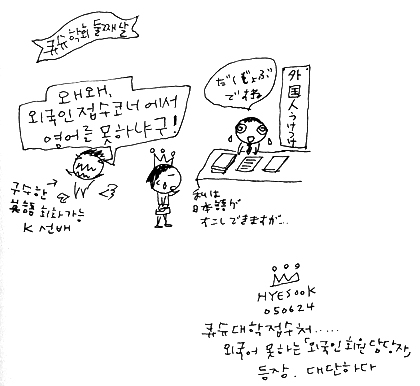 큐슈학회 둘째날
왜왜,
외국인접수코너에서
영어를 못하냐구!
だいじょぶ
ですね
外国人うけつけ
구수한
英語 회화가능
K 선배
私は
日本語が
すこしできますが…
HYESOOK
050624
큐슈대학접수처.....
외국어 못하는「외국인회원담당자」
등장. 대단하다